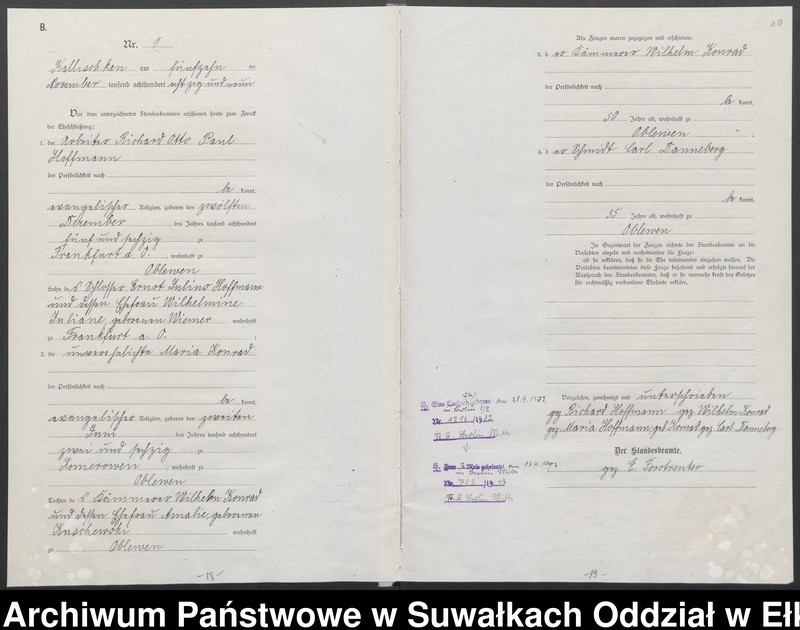 B.
Nr. 9
Kallischken am fünfzehn ten
November tausend achthundert achtzig und neun
Vor dem unterzeichneten Standesbeamten erschienen heute zum Zweck
der Eheschließung:
1. der Arbeiter Richard Otto Paul
Hoffmann
der Persönlichkeit nach
be kannt,
evangelischer Religion, geboren den zwölften
Dezember des Jahres tausend achthundert
fünf und sechzig zu
Frankfurt a. O., wohnhaft zu
Oblewen
Sohn des Schlosser Ernst Julius Hoffmann
und dessen Ehefrau Wilhelmine
Juliane, geborenen Wiemer wohnhaft
zu Frankfurt a. O. ;
2. die unverehelichte Maria Konrad
der Persönlichkeit nach
be kannt,
evangelischer Religion, geboren den zweiten
Juni des Jahres tausend achthundert
zwei und sechzig zu
Komorowen, wohnhaft zu
Oblewen
Tochter des Kämmerer Wilhelm Konrad
und dessen Ehefrau Amalie, geborenen
wohnhaft
zu Oblewen
-18-
Als Zeugen waren zugezogen und erschienen:
3. der Kämmerer Wilhelm Konrad
der Persönlichkeit nach
be kannt,
50 Jahre alt, wohnhaft zu
Oblewen ;
4. der Schmidt Carl Danneberg
der Persönlichkeit nach
be kannt,
35 Jahre alt, wohnhaft zu
Oblewen
In Gegenwart der Zeugen richtete der Standesbeamte an die
Verlobten einzeln und nacheinander die Frage:
ob sie erklären, daß sie die Ehe miteinander eingehen wollen. Die
Verlobten beantworteten diese Frage bejahend und erfolgte hierauf der
Ausspruch des Standesbeamten, daß er sie nunmehr kraft des Gesetzes
für rechtmäßig verbundene Eheleute erkläre.
Vorgelesen, genehmigt und unterschrieben
gez. Richard Hoffmann gez. Wilhelm Konrad
gez. Maria Hoffmann, geb. Konrad gez. Carl Danneberg
Der Standesbeamte.
gez.
B. Eine Tochter geboren am
in Berlin
Nr.
B. Zum 3. Male geheiratet am
in Berlin Mitte
Nr. 705 /1943
St. A. Berlin Mitte
-19-
Archiwum Państwowe w Suwałkach Oddział w Eł